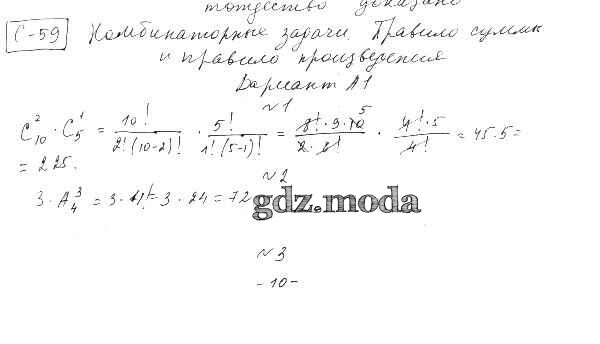 тождество доказано
С-59 Комбинаторные задачи. Правило суммы
и правило произведения
Вариант А1
№1
C₁₀² · C₅¹ = 10!/(2!(10-2)!) · 5!/(1!(5-1)!) = (8!·9·10)/(2·8!) 5 · (4!·5)/4! = 45·5=
= 225.
№2
3·A₄³ = 3·4! = 3·24 = 72
gdz.moda
№3
-10-